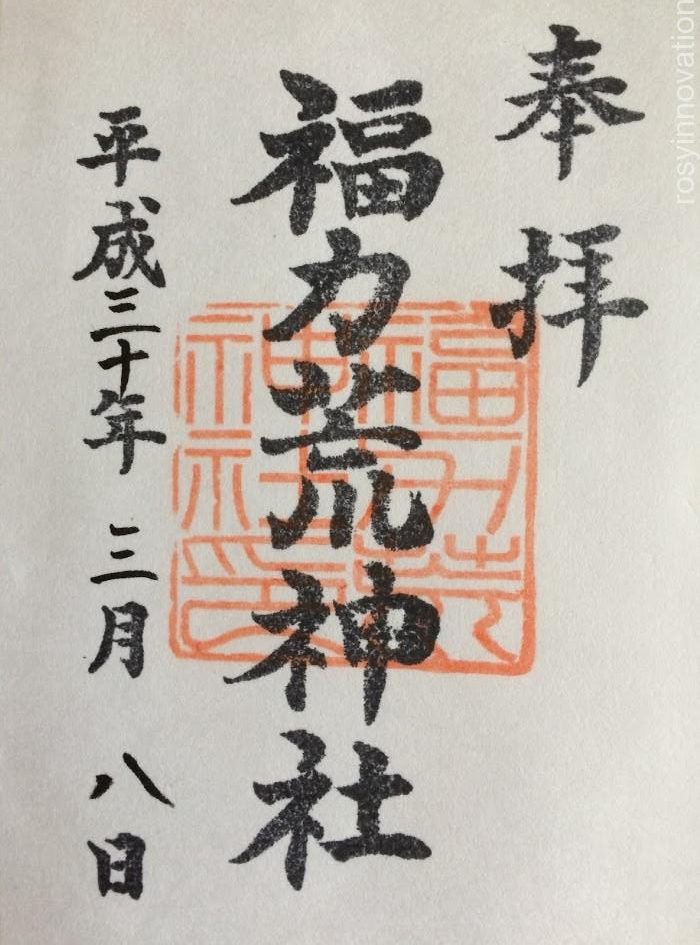 奉拝
福力荒神社
平成三十年 三月 八日
福力荒神社印
rosyinnovation